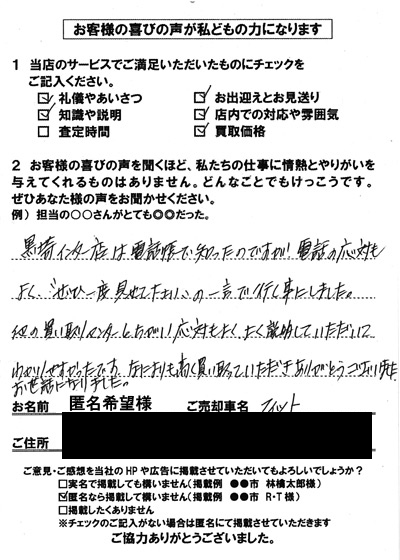 お客様の喜びの声が私どもの力になります
1 当店のサービスでご満足いただいたものにチェックを
ご記入ください。
☑礼儀やあいさつ ☑お出迎えとお見送り
☑知識や説明 ☑店内での対応や雰囲気
□査定時間 ☑買取価格
2 お客様の喜びの声を聞くほど、私たちの仕事に情熱とやりがいを
与えてくれるものはありません。どんなことでもけっこうです。
ぜひあなた様の声をお聞かせください。
例）担当の○○さんがとても◎◎だった。
黒埼インター店は電話帳で知ったのですが！電話の応対も
よく、ぜひ一度見せて下さい、の一言で行く事にしました。
他の買い取りセンターとちがい応対もよく、よく説明していただいて
わかりやすかったです。なによりも高く買い取っていただきありがとうございました
お世話になりました。
お名前 匿名希望様 ご売却車名 フィット
ご住所
ご意見・ご感想を当社のHPや広告に掲載させていただいてもよろしいでしょうか？
□実名で掲載しても構いません（掲載例 ●●市 林檎太郎様）
☑匿名なら掲載して構いません（掲載例 ●●市 R・T様）
□掲載したくありません
※チェックのご記入がない場合は匿名にて掲載させていただきます
ご協力ありがとうございました。